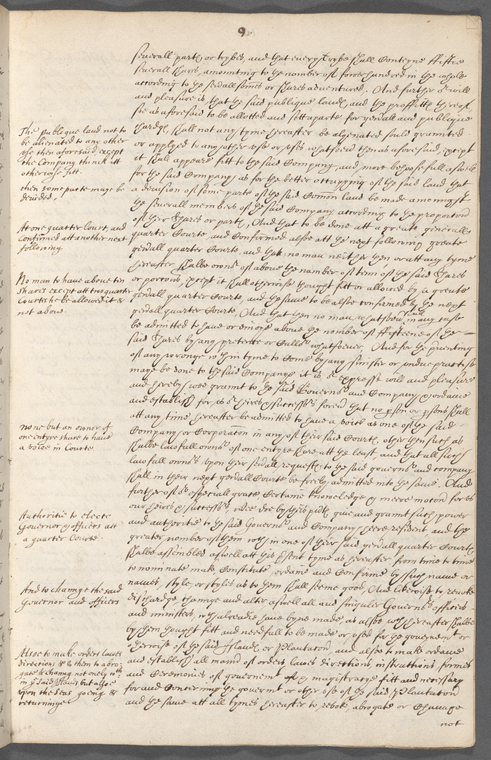 9
severall partes or tribes, and that every tribe shall conteyne fiftie
severall shares, amounting to the number of fower hundred in the whole
according to the severall sumes or shares adventured. And further our will
and pleasure is that the said publique land, and the proffitts thereof
soe as aforesaid to be allotted and sett aparte for generall and publique
charge shall not any tyme hereafter be alienated graunted
or applyed to any other use or uses whatsoever then as aforesaid, except
it shall appeare fitt to the said Company, and more behoofefull
for the said Company as for the better of the said land that
a devision of some parte of the said Comon land be made amongst
the severall members of the said Company according to the proporcon
of their shares or parts, And that to be done att a greate generall
quarter Courte and Confirmed alsoe att the next following greate
generall quarter Courte, and that no man neither then or att any tyme
hereafter shalbe owner of above the number of tenn of the said shares
or portions, except it shall otherwise thought fitt or allowed by a greate
generall quarter Courte and the same to be alsoe confirmed by the next
generall quarter Courte. And that then no man whatsoever in any case
be admitted to have or enioy above the number of fifteene of the
said shares by any pretexte or Culler whatsoever. And for the preventing
of any which in tyme to come by any sinister or undue practise
may be done to the said Company, it is expresse will and pleasure
and hereby wee graunt to the said Governor and Company, ordaine
and establish for us heires & successors for ever that no person or persons shall
att any time hereafter be admitted to have a voice as one of the said
Company or Corporation in any of their said Courts, other then such as
shalbe lawfull owner of one entyre share att the least, and that all such
lawfull owners upon their severall requests, to the said governor and company
shall in their next generall Courte be freely admitted into the same. And
further of our especiall grace, certaine knowledge & meere motion for us
our heires & successors, wee doe by these presents give and graunt full power
and authoritie to the said Governor and Company, here resident and the
greater number of them in one of their said generall quarter Courts
shalbe assembled aswell att this present tyme as hereafter from time to time
to nominate make Constitute ordaine and Confirme by such name or
names, style, or styles as to them shall seeme good, And likewise to revoke
discharge, change and alter aswell all and singuler Governors officers
and ministers, which alreadie have byn made, as alsoe which hereafter shalbe
by them thought fitt and needfull to be made or used for the government or
of the said Islands or Plantation, and alsoe to make ordaine
and establish all manner of orders lawes directions, instructions, formes
and Ceremonies of government & magistracy fitt and necessary
for and Concerning the government or other use of the said Plantation
and the same att all tymes hereafter to revoke, abrogate or Chaunge
not
The publique land not to
be alienated to any other
use then aforesaid, except
the Company think itt
otherwise fitt.
then some parte may be
devided.
At one quarter Court, and
confirmed att another next
following.
No man to have above tenn
shares except att two quarter
Courts he be allowed it &
not above.
none but an owner of
one entyre share to have
a voice in Courte
Authoritie to electe
Governor & officers att
a quarter Courte.
And to change the said
Governor and officers
Alsoe to make orders lawes
directions & then to abro=
gate & change not onely
in said but alsoe
upon the seas going &
returninge